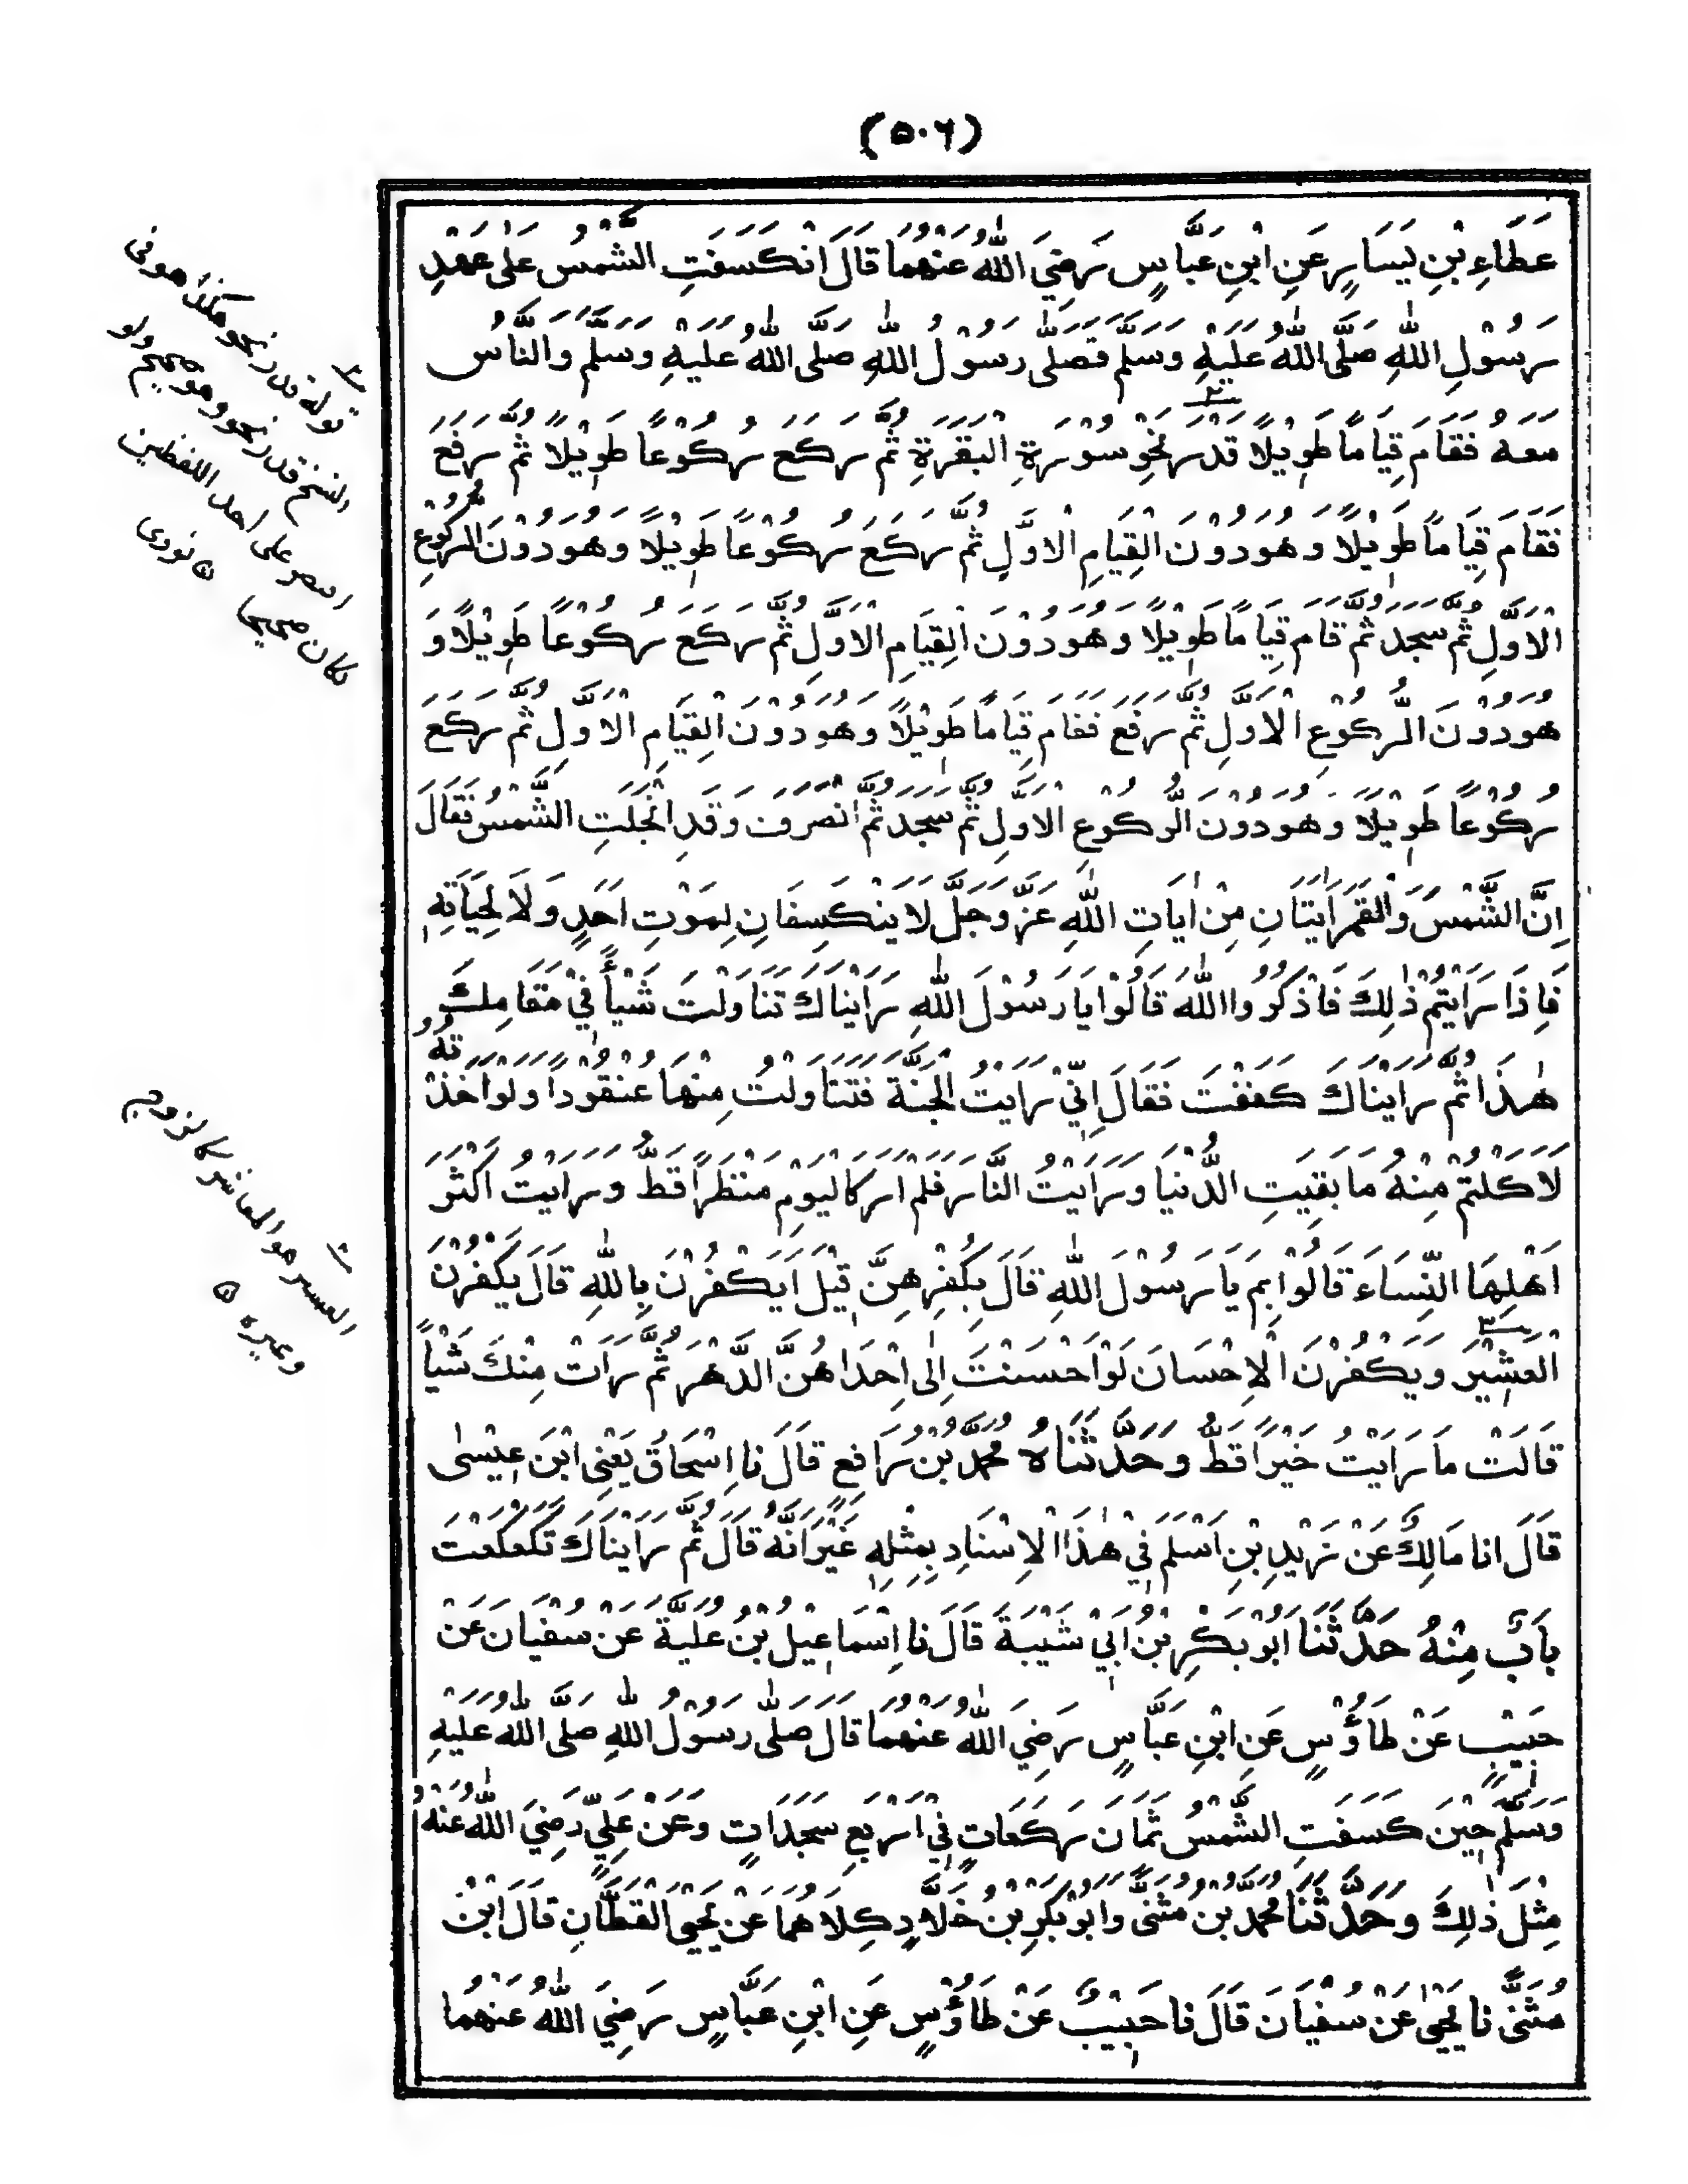 (٥٠٦)
عَطَاءِ بْنِ يَسَارٍ عَنِ ابْنِ عَبَّاسٍ رَضِيَ اللّٰهُ عَنْهُمَا قَالَ انْكَسَفَتِ الشَّمْسُ عَلٰى عَهْدِ
رَسُوْلِ اللّٰهِ صَلَّى اللّٰهُ عَلَيْهِ وَسَلَّمَ فَصَلّٰى رَسُوْلُ اللّٰهِ صَلَّى اللّٰهُ عَلَيْهِ وَسَلَّمَ وَالنَّاسُ
مَعَهُ فَقَامَ قِيَامًا طَوِيْلًا قَدْرَ نَحْوِ سُوْرَةِ الْبَقَرَةِ ثُمَّ رَكَعَ رُكُوْعًا طَوِيْلًا ثُمَّ رَفَعَ
فَقَامَ قِيَامًا طَوِيْلًا وَهُوَ دُوْنَ الْقِيَامِ الْاَوَّلِ ثُمَّ رَكَعَ رُكُوْعًا طَوِيْلًا وَهُوَ دُوْنَ الرُّكُوْعِ
الْاَوَّلِ ثُمَّ سَجَدَ ثُمَّ قَامَ قِيَامًا طَوِيْلًا وَهُوَ دُوْنَ الْقِيَامِ الْاَوَّلِ ثُمَّ رَكَعَ رُكُوْعًا طَوِيْلًا وَ
هُوَ دُوْنَ الرُّكُوْعِ الْاَوَّلِ ثُمَّ رَفَعَ فَقَامَ قِيَامًا طَوِيْلًا وَهُوَ دُوْنَ الْقِيَامِ الْاَوَّلِ ثُمَّ رَكَعَ
رُكُوْعًا طَوِيْلًا وَهُوَ دُوْنَ الرُّكُوْعِ الْاَوَّلِ ثُمَّ سَجَدَ ثُمَّ انْصَرَفَ وَقَدِ انْجَلَتِ الشَّمْسُ فَقَالَ
اِنَّ الشَّمْسَ وَالْقَمَرَ اٰيَتَانِ مِنْ اٰيَاتِ اللّٰهِ عَزَّ وَجَلَّ لَا يَنْكَسِفَانِ لِمَوْتِ اَحَدٍ وَلَا لِحَيَاتِهٖ
فَاِذَا رَاَيْتُمْ ذٰلِكَ فَاذْكُرُوا اللّٰهَ قَالُوْا يَا رَسُوْلَ اللّٰهِ رَاَيْنَاكَ تَنَاوَلْتَ شَيْأً فِيْ مَقَامِكَ
هٰذَا ثُمَّ رَاَيْنَاكَ كَفَفْتَ فَقَالَ اِنِّيْ رَاَيْتُ الْجَنَّةَ فَتَنَاوَلْتُ مِنْهَا عُنْقُوْدًا وَلَوْ اَخَذْتُهُ
لَاَكَلْتُمْ مِنْهُ مَا بَقِيَتِ الدُّنْيَا وَرَاَيْتُ النَّارَ فَلَمْ اَرَ كَالْيَوْمِ مَنْظَرًا قَطُّ وَرَاَيْتُ اَكْثَرَ
اَهْلِهَا النِّسَاءَ قَالُوْا بِمَ يَا رَسُوْلَ اللّٰهِ قَالَ بِكُفْرِهِنَّ قِيْلَ اَيَكْفُرْنَ بِاللّٰهِ قَالَ يَكْفُرْنَ
الْعَشِيْرَ وَيَكْفُرْنَ الْاِحْسَانَ لَوْ اَحْسَنْتَ اِلٰى اِحْدَاهُنَّ الدَّهْرَ ثُمَّ رَاَتْ مِنْكَ شَيْأً
قَالَتْ مَا رَاَيْتُ خَيْرًا قَطُّ وَحَدَّثَنَاهُ مُحَمَّدُ بْنُ رَافِعٍ قَالَ نَا اِسْحَاقُ يَعْنِى ابْنَ عِيْسٰى
قَالَ انا مَالِكٌ عَنْ زَيْدِ بْنِ اَسْلَمَ فِيْ هٰذَا الْاِسْنَادِ بِمِثْلِهٖ غَيْرَ اَنَّهُ قَالَ ثُمَّ رَاَيْنَاكَ تَكَعْكَعْتَ
بَابٌ مِنْهُ حَدَّثَنَا اَبُوْ بَكْرِ بْنُ اَبِيْ شَيْبَةَ قَالَ نَا اِسْمَاعِيْلُ بْنُ عُلَيَّةَ عَنْ سُفْيَانَ عَنْ
حَبِيْبٍ عَنْ طَاؤُسٍ عَنِ ابْنِ عَبَّاسٍ رَضِيَ اللّٰهُ عَنْهُمَا قَالَ صَلّٰى رَسُوْلُ اللّٰهِ صَلَّى اللّٰهُ عَلَيْهِ
وَسَلَّمَ حِيْنَ كَسَفَتِ الشَّمْسُ ثَمَانَ رَكَعَاتٍ فِيْ اَرْبَعِ سَجَدَاتٍ وَعَنْ عَلِيٍّ رَضِيَ اللّٰهُ عَنْهُ
مِثْلَ ذٰلِكَ وَحَدَّثَنَا مُحَمَّدُ بْنُ مُثَنَّى وَاَبُوْ بَكْرِ بْنُ خَلَّادٍ كِلَاهُمَا عَنْ يَحْيَى الْقَطَّانِ قَالَ ابْنُ
مُثَنَّى نَا يَحْيٰى عَنْ سُفْيَانَ قَالَ نَا حَبِيْبٌ عَنْ طَاؤُسٍ عَنِ ابْنِ عَبَّاسٍ رَضِيَ اللّٰهُ عَنْهُمَا
قوله قدر نحو هكذا هو فى
النسخ قدر نحو وهو صحيح ولو
اقتصر على احد اللفظين
لكان صحيحا نووى
العشير هو المعاشر كالزوج
وغيره